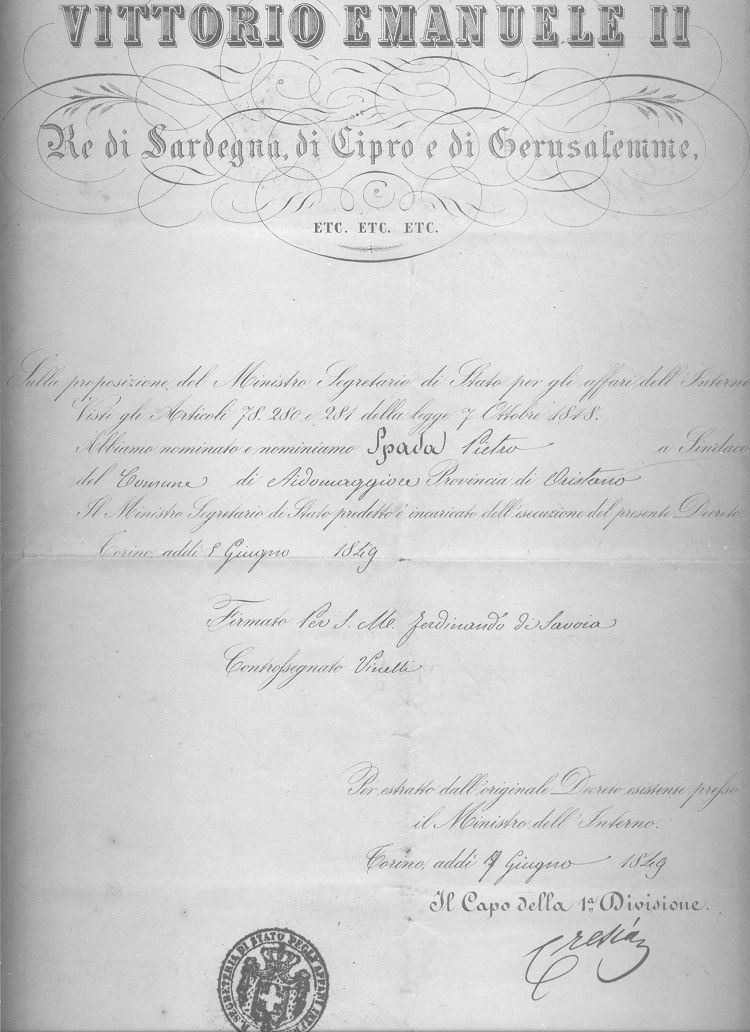 VITTORIO EMANUELE II
Re di Sardegna, di Cipro e di Gerusalemme,
ETC. ETC. ETC.
Sulla proposizione del Ministro Segretario di Stato per gli affari dell'Interno
Visti gli Articoli 78. 280 e 281 della legge 7 Ottobre 1848.
Abbiamo nominato e nominiamo Spada Pietro a Sindaco
del Comune di Aidomaggiore Provincia di Oristano
Il Ministro Segretario di Stato predetto è incaricato dell'esecuzione del presente Decreto.
Torino, addì Giugno 1849
Firmato Per S. M. Ferdinando di Savoia
Controssegnato Pinelli
Per estratto dall'originale Decreto esistente presso
il Ministro dell'Interno.
Torino, addì 9 Giugno 1849
Il Capo della 1.a Divisione.
R. SEGRETERIA DI STATO DEGLI AFFARI